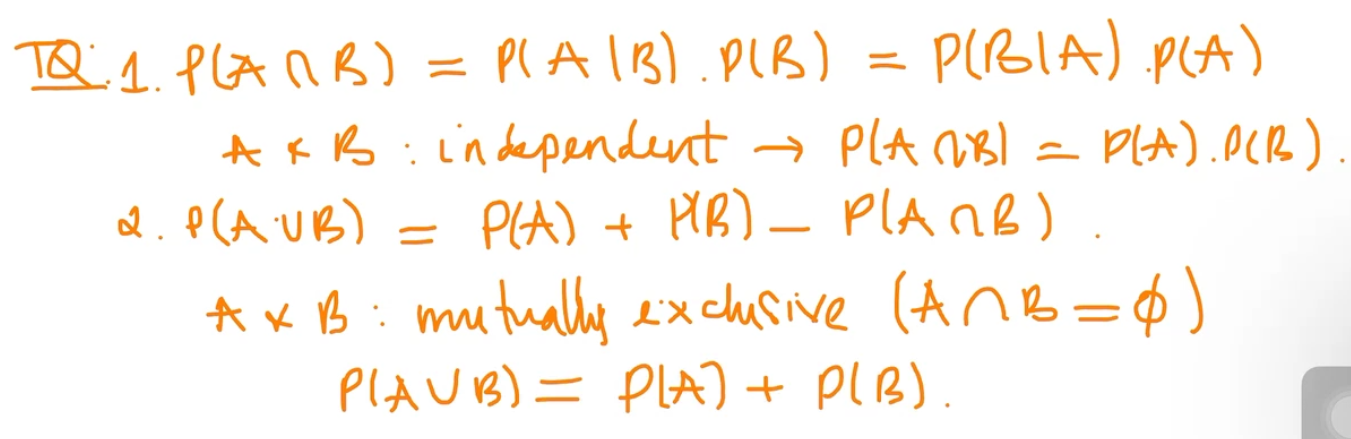 TQ: 1. P(A ∩ B) = P(A|B) . P(B) = P(B|A) . P(A)
A & B : independent → P(A ∩ B) = P(A) . P(B) .
2. P(A ∪ B) = P(A) + P(B) − P(A ∩ B) .
A & B : mutually exclusive (A ∩ B = ϕ)
P(A ∪ B) = P(A) + P(B) .